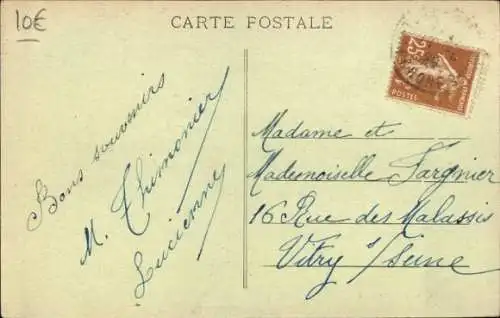 10€
CARTE POSTALE
25c
POSTES
Bons souvenirs
M. Thimonier
Lucienne
Madame et
Mademoiselle Fargnier
16 Rue des Malassis
Vitry s/ Seine